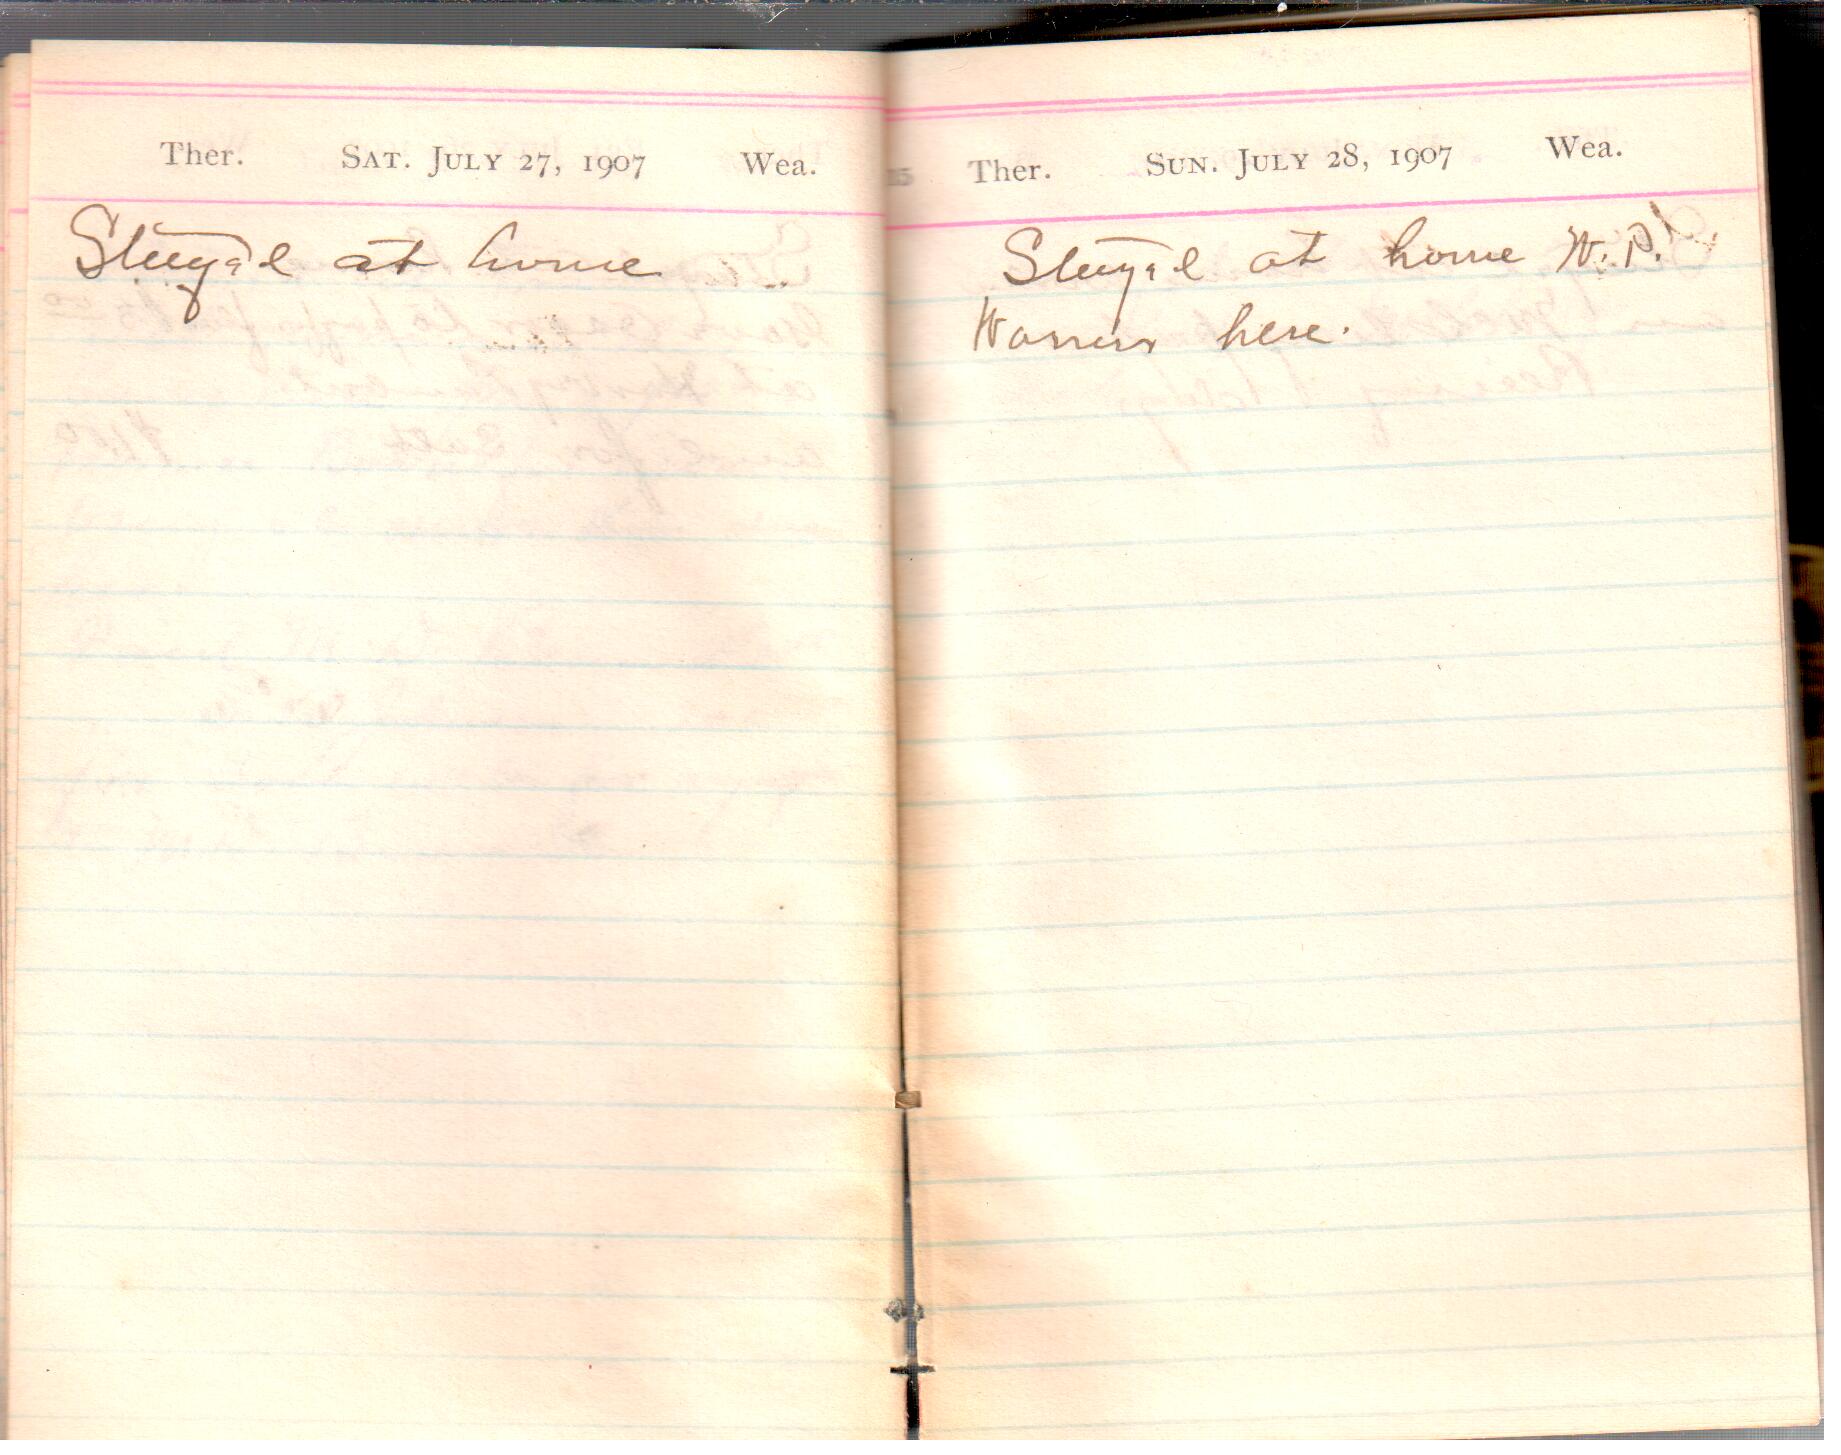 Ther. SAT. JULY 27, 1907 Wea.
Stayed at home
Ther. SUN. JULY 28, 1907 Wea.
Stayed at home W. P.
Warren here.